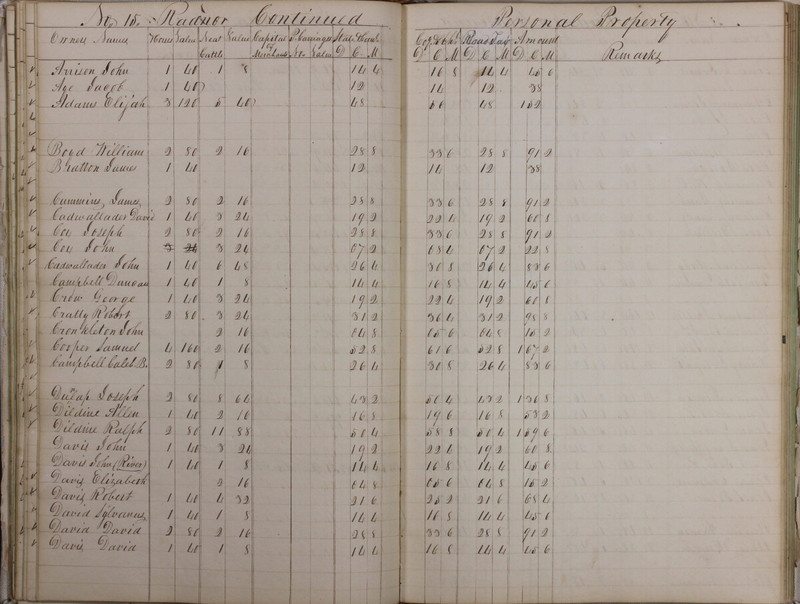 No. 18. Radnor Continued Personal Property
Owners Names Horses Value Neat Cattle Value Capital of Merchants P. Carriages No. Value State & Canal D C M Co. & Sch. D C M Road Tax D C M Amount D C M Remarks
Arrison John 1 40 1 8 14 4 16 8 14 4 45 6
Aye Jacob 1 40 12 14 12 38
Adams Elijah 3 120 5 40 48 56 48 152
Boyd William 2 80 2 16 28 8 33 6 28 8 91 2
Bratton James 1 40 12 14 12 38
Cummins, James, 2 80 2 16 28 8 33 6 28 8 91 2
Cadwallader David 1 40 3 24 19 2 22 4 19 2 60 8
Cox Joseph 2 80 2 16 28 8 33 6 28 8 91 2
Cox John 3 24 07 2 08 4 07 2 22 8
Cadwallader John 1 40 6 48 26 4 30 8 26 4 83 6
Campbell Duncan 1 40 1 8 14 4 16 8 14 4 45 6
Crow George 1 40 3 24 19 2 22 4 19 2 60 8
Cratty Robert 2 80 3 24 31 2 36 4 31 2 98 8
Cronkleton John 2 16 04 8 05 6 04 8 15 2
Cooper Samuel 4 160 2 16 52 8 61 6 52 8 1 67 2
Campbell Caleb B. 2 80 1 8 26 4 30 8 26 4 83 6
Dunlap Joseph 2 80 8 64 43 2 50 4 43 2 1 36 8
Dildine Allen 1 40 2 16 16 8 19 6 16 8 53 2
Dildine Ralph 2 80 11 88 50 4 58 8 50 4 1 59 6
Davis John 1 40 3 24 19 2 22 4 19 2 60 8
Davis John (River) 1 40 1 8 14 4 16 8 14 4 45 6
Davis Elizabeth 2 16 04 8 05 6 04 8 15 2
Davis Robert 1 40 4 32 21 6 25 2 21 6 68 4
David Sylvanus, 1 40 1 8 14 4 16 8 14 4 45 6
David David 2 80 2 16 28 8 33 6 28 8 91 2
Davis David 1 40 1 8 14 4 16 8 14 4 45 6